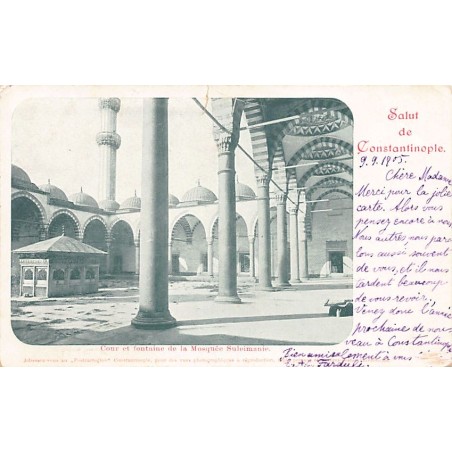 Salut
de
Constantinople.
9.9.1905.
Chère Madame
Merci pour la jolie
carte. Alors vous
pensez encore à nous
Nous autres nous parlons
aussi souvent
de vous, et il nous
tardent beaucoup
de vous revoir.
Venez donc l'année
prochaine de nouveau
à Constantinople
Bien amicalement à vous
Cour et fontaine de la Mosquée Suleimanié.